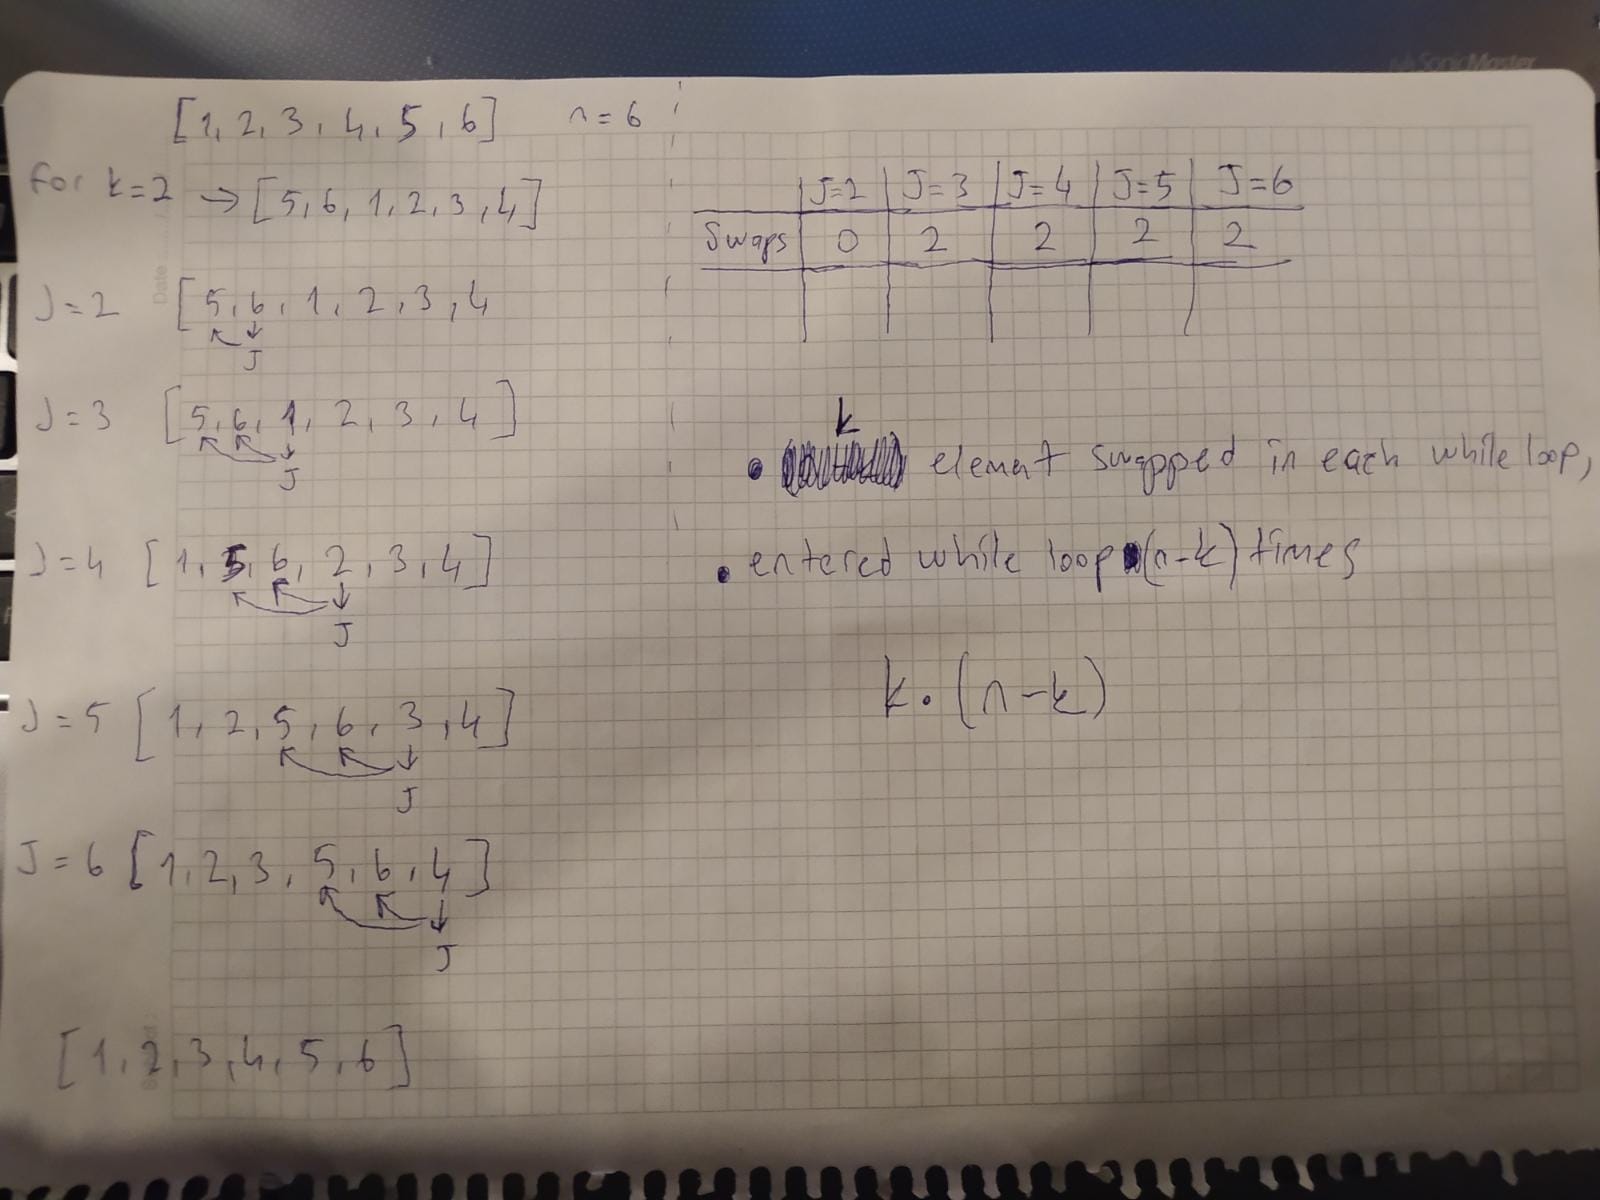 SonicMaster
[1, 2, 3, 4, 5, 6] n = 6
for k=2 → [5, 6, 1, 2, 3, 4]
J = 2 [5, 6, 1, 2, 3, 4
J
J = 3 [5, 6, 1, 2, 3, 4]
J
J = 4 [1, 5, 6, 2, 3, 4]
J
J = 5 [1, 2, 5, 6, 3, 4]
J
J = 6 [1, 2, 3, 5, 6, 4]
J
[1, 2, 3, 4, 5, 6]
J=2 J=3 J=4 J=5 J=6
Swaps 0 2 2 2 2
k
• element swapped in each while loop,
• entered while loop (n-k) times
k · (n-k)
Date